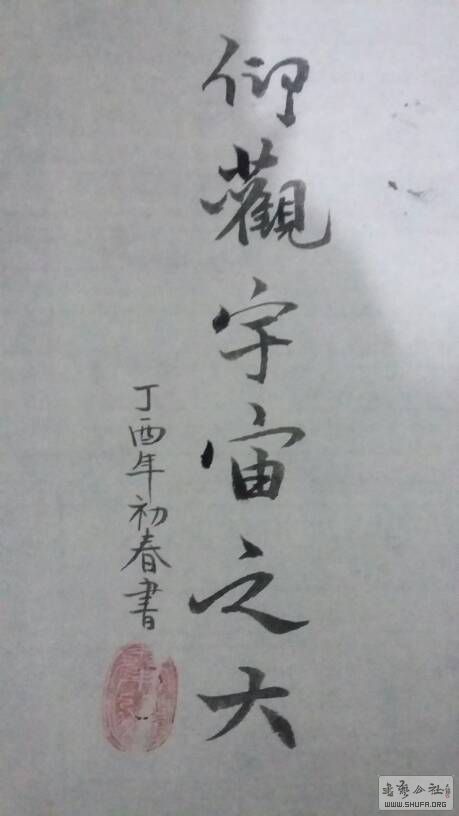 仰觀宇宙之大
丁酉年初春書
书艺公社
WWW.SHUFA.ORG